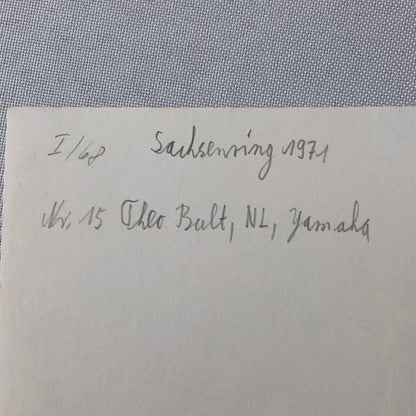 I/68 Sachsenring 1971
Nr. 15 Theo Bult, NL, Yamaha